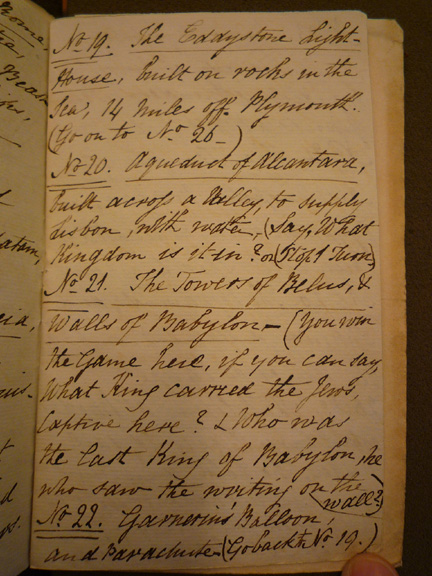 No 19. The Eddystone Light-
House, built on rocks in the
Sea, 14 miles off Plymouth.
(Go on to No 26—)
No 20. Aqueduct of Alcantara,
built across a Valley, to supply
Lisbon, with water, (Say, What
Kingdom is it in? or (Stop 1 Turn)
No 21. The Towers of Belus, &
Walls of Babylon— (You win
the Game here, if you can say,
What King carried the Jews,
Captive here? & Who was
the last King of Babylon, he
who saw the writing on the
wall?)
No 22. Garnerin's Balloon,
and Parachute— (Go back to No 19.)